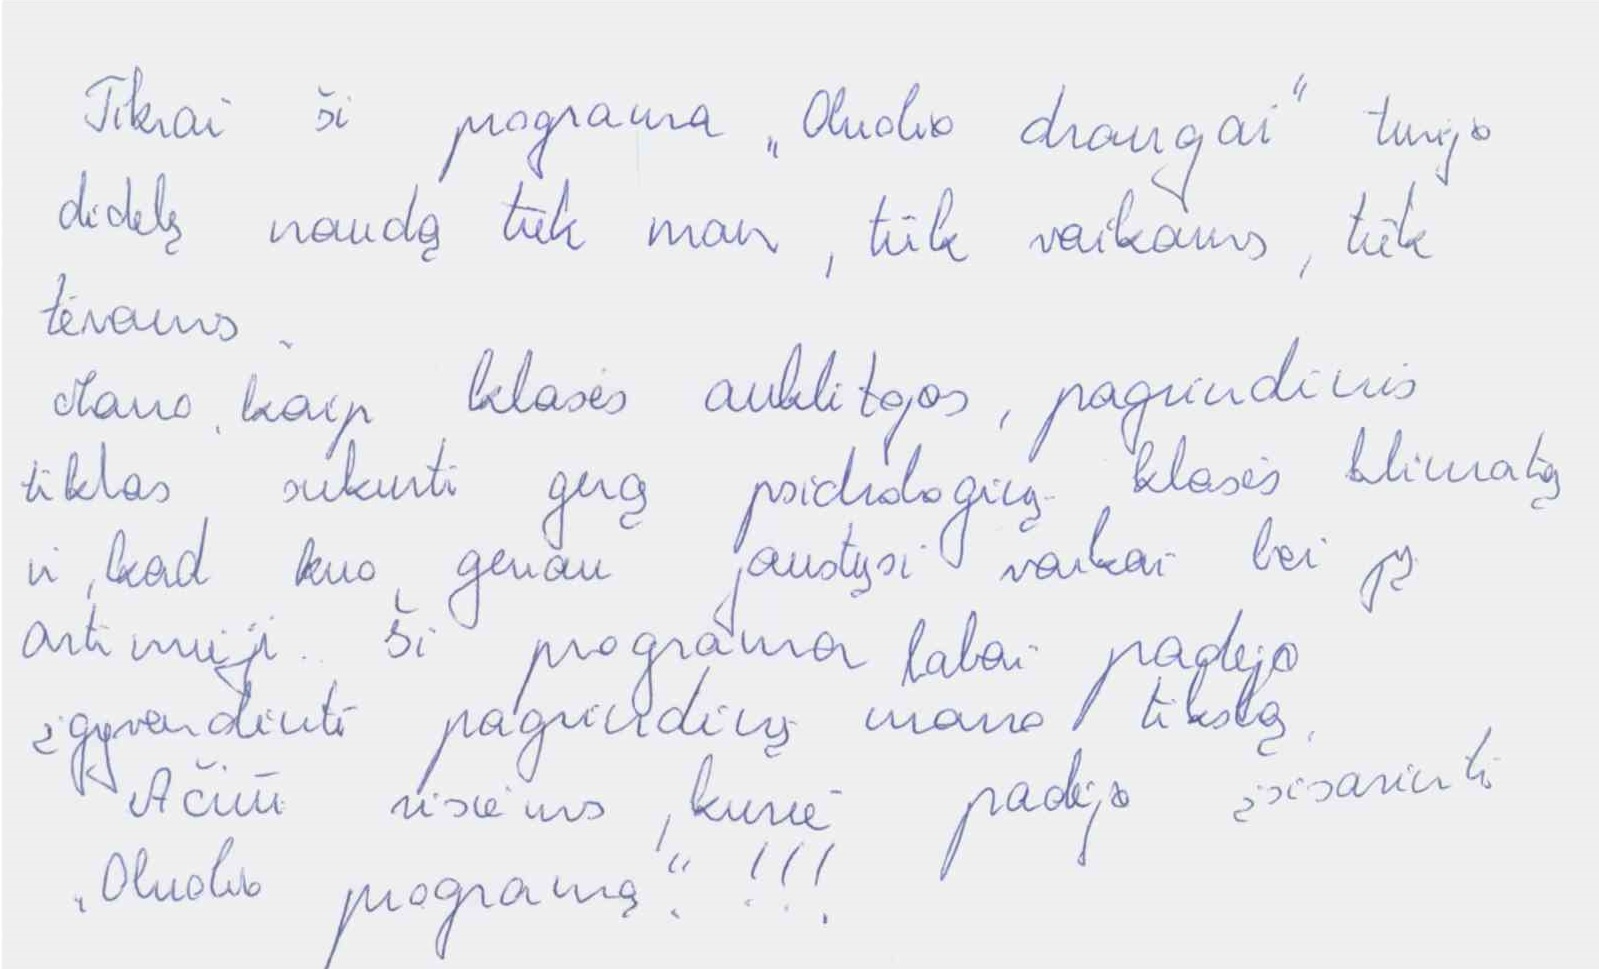 Tikrai ši programa „Obuolio draugai“ turėjo
didelę naudą tiek man, tiek vaikams, tiek
tėvams.
Mano, kaip klasės auklėtojos, pagrindinis
tiklas sukurti gerą psichologinį klasės klimatą
ir, kad kuo geriau jaustųsi vaikai bei jų
artimieji. Ši programa labai padėjo
įgyvendinti pagrindinį mano tikslą.
Ačiū visiems, kurie padėjo įsisavinti
„Obuolio programą“. !!!